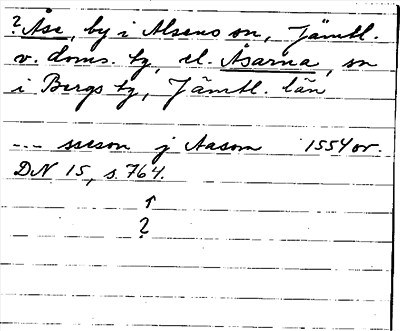 ? Åse, by i Alsens sn, Jämtl.
v. doms. tg, el. Åsarna, sn
i Bergs tg, Jämtl. län
--- j Aasom 1554 or.
DN 15, s. 764.
↑
?